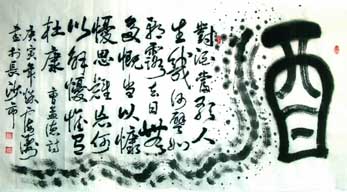 酉
對酒當歌人
生幾何譬如
朝露去日苦
多慨當以慷
憂思難忘何
以解憂惟有
杜康 曹孟德詩
庚寅年
書於長沙市